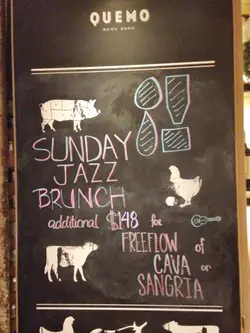 QUEMO
HONG KONG
SUNDAY
JAZZ
BRUNCH
additional $148 for
FREEFLOW of
CAVA or
SANGRIA